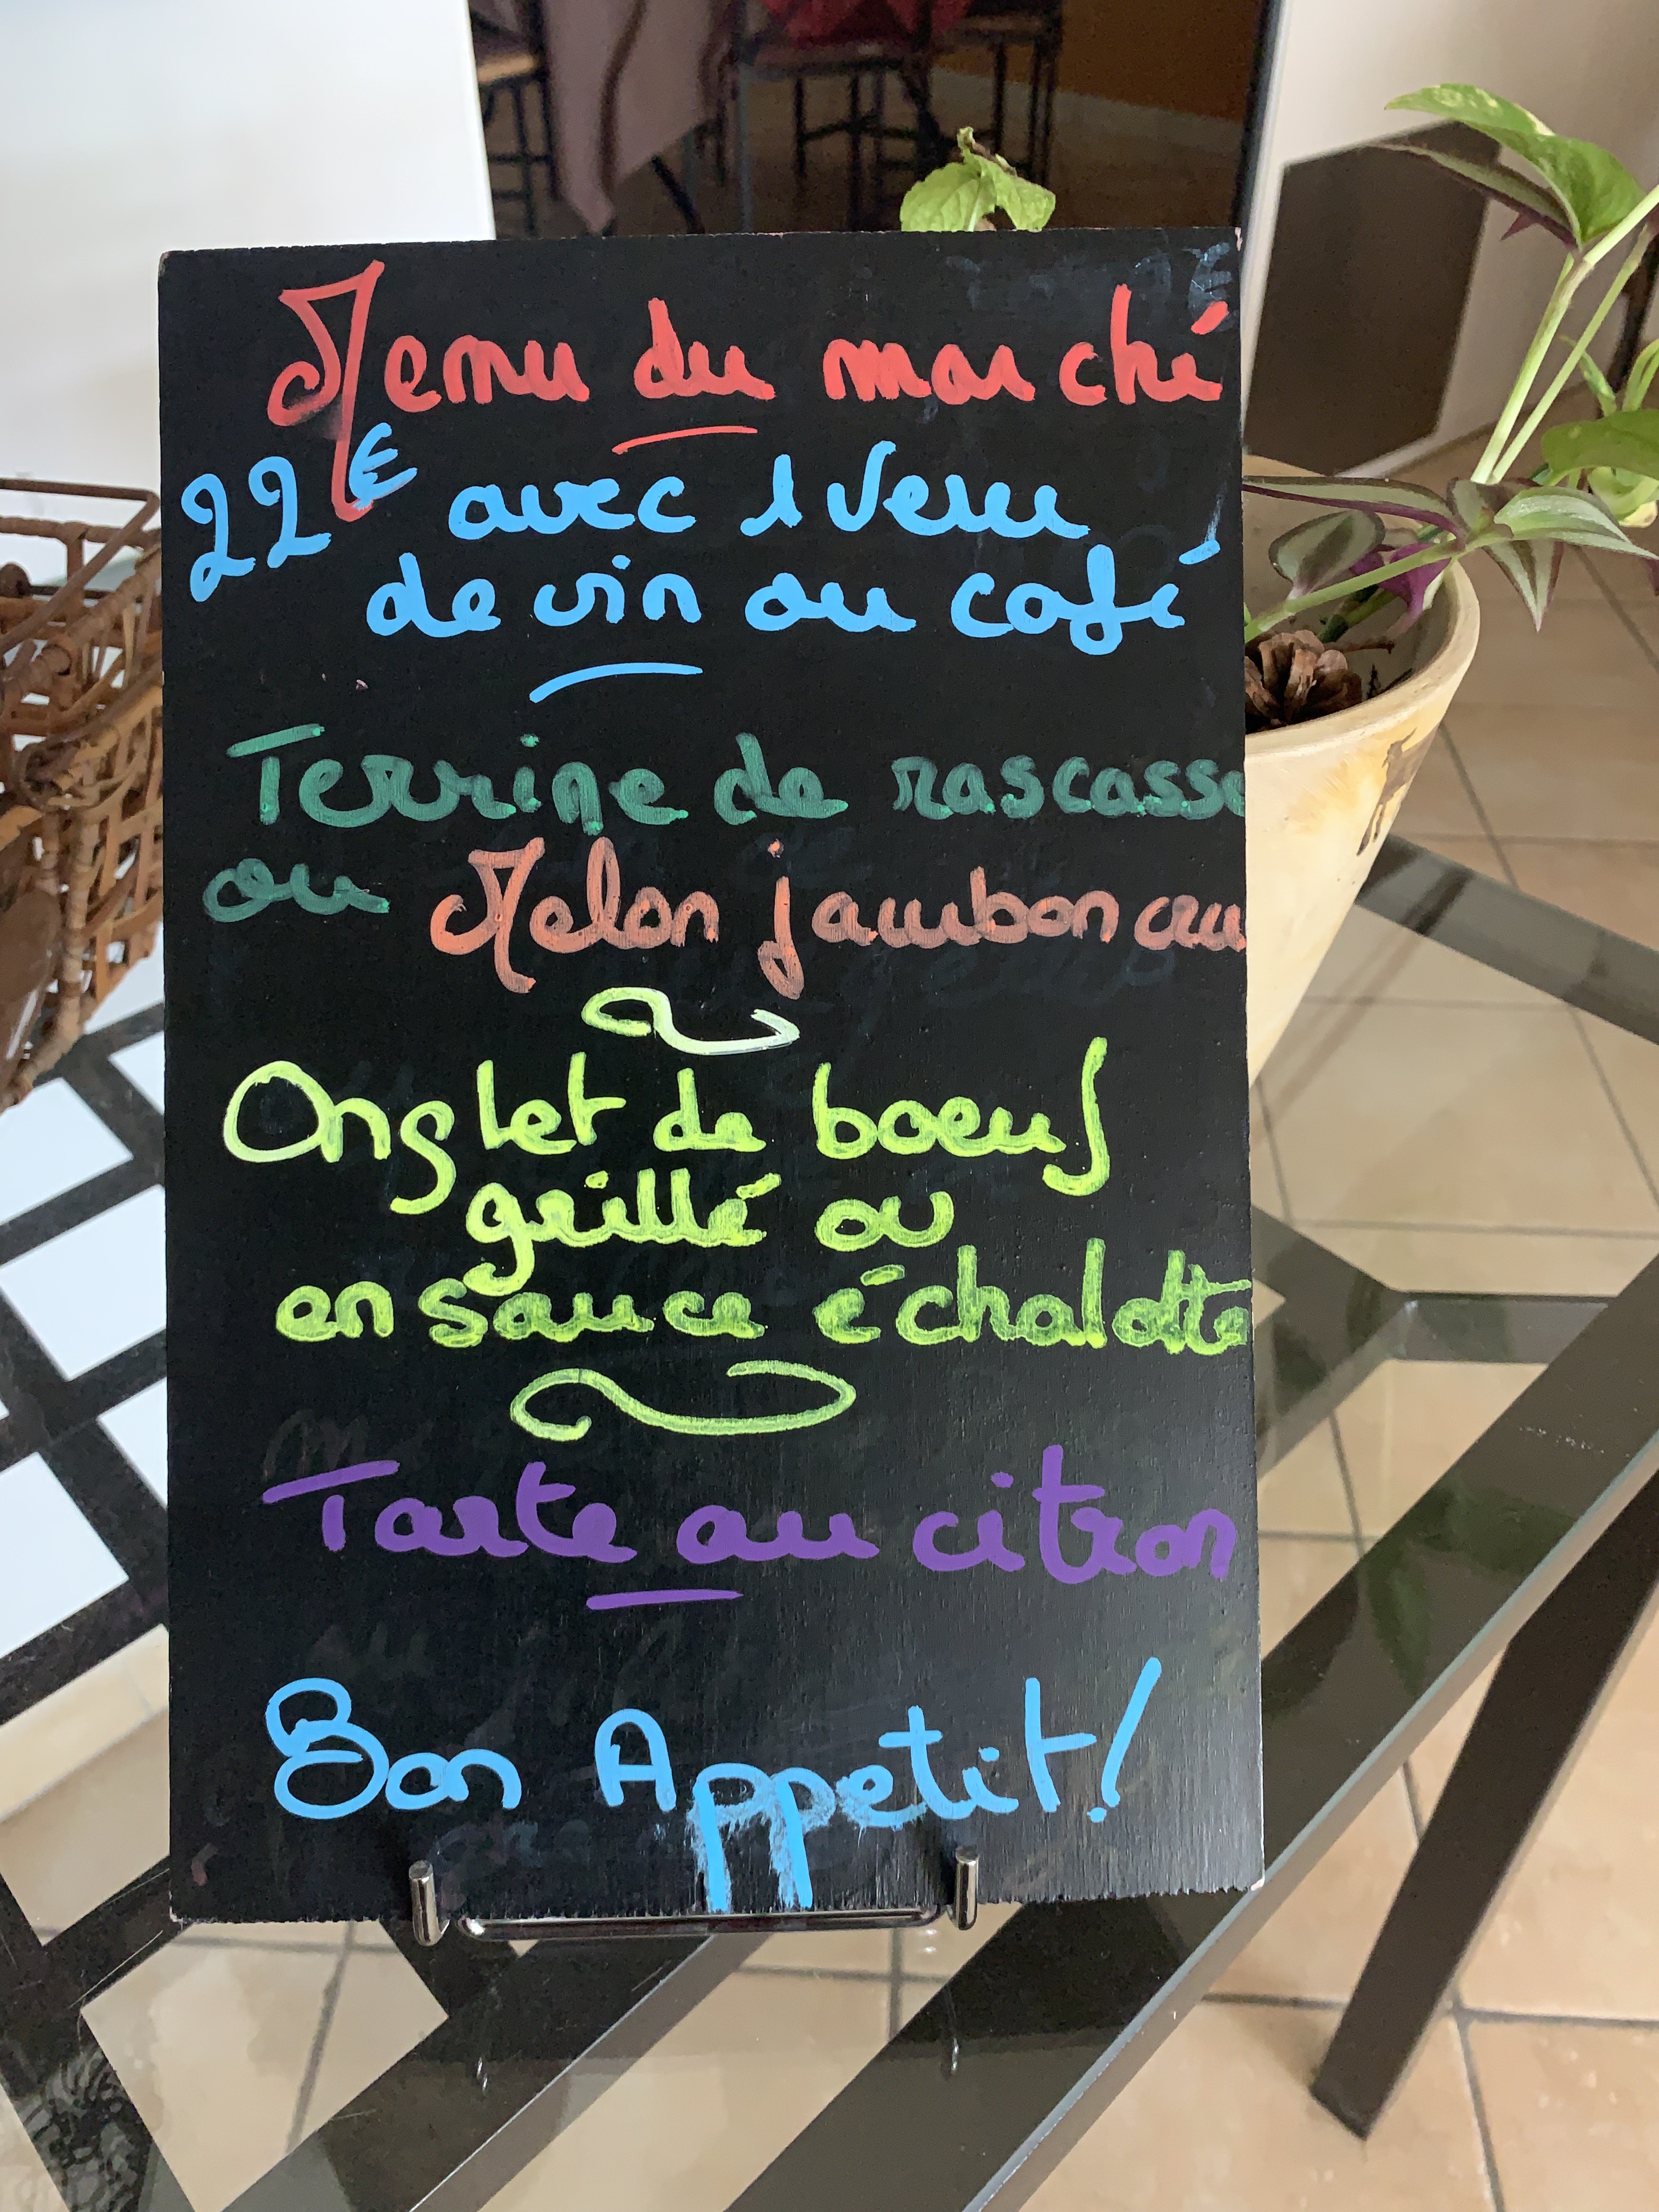 Menu du marché
22€ avec 1 verre
de vin ou café
Terrine de rascasse
ou Melon jambon cru
Onglet de boeuf
grillé ou
en sauce échalotte
Tarte au citron
Bon Appetit!